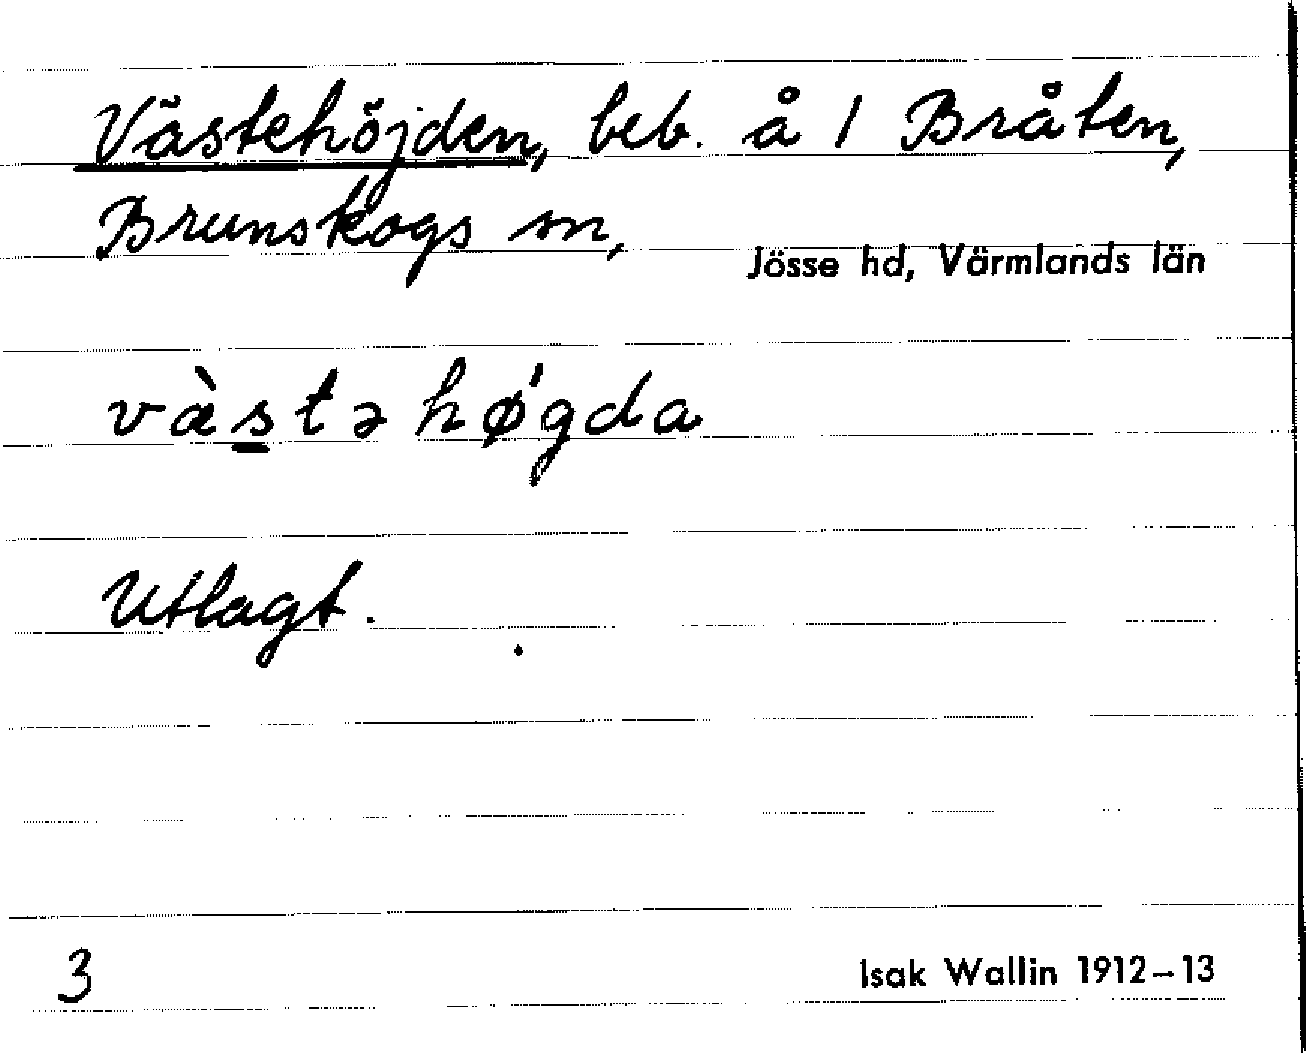 Västehöjden, beb. å 1 Bråten,
Brunskogs sn, Jösse hd, Värmlands län
væ̀s̲tə hǿgda
Utlagt.
3 Isak Wallin 1912–13